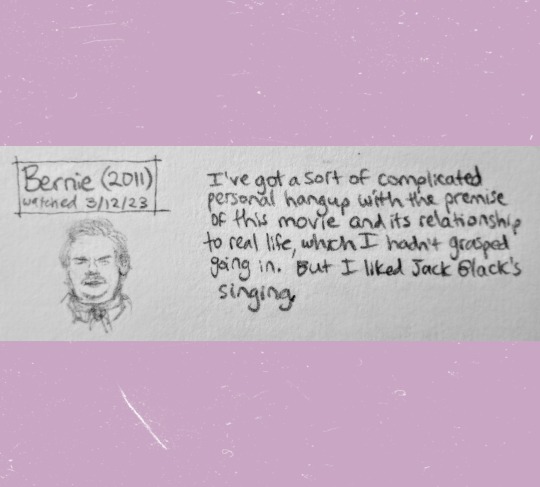 Bernie (2011)
watched 3/12/23
I've got a sort of complicated
personal hangup with the premise
of this movie and its relationship
to real life, which I hadn't grasped
going in. But I liked Jack Black's
singing.